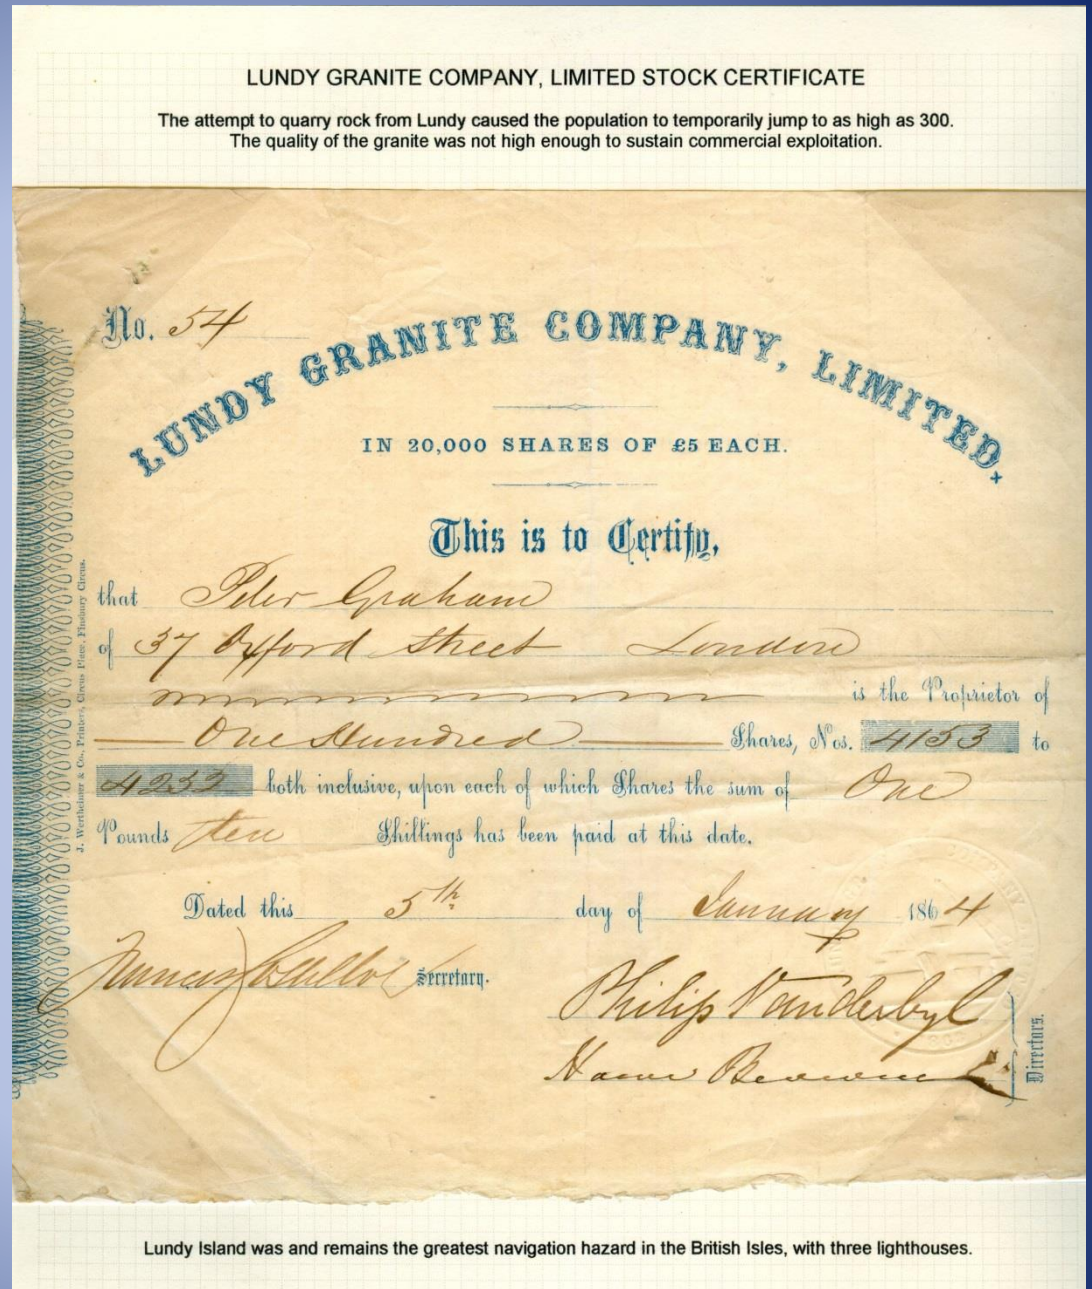 LUNDY GRANITE COMPANY, LIMITED STOCK CERTIFICATE
The attempt to quarry rock from Lundy caused the population to temporarily jump to as high as 300.
The quality of the granite was not high enough to sustain commercial exploitation.
No. 54
LUNDY GRANITE COMPANY, LIMITED.
IN 20,000 SHARES OF £5 EACH.
This is to Certify,
that Peter Graham
of 37 Oxford Street London
is the Proprietor of
One Hundred Shares, Nos. 4153 to
both inclusive, upon each of which Shares the sum of One
Pounds ten Shillings has been paid at this date.
Dated this 5th day of January 1864
Francis Secretary.
Philip Vanderbyl
Directors.
J. Wertheimer & Co., Printers, Circus Place, Finsbury Circus.
Lundy Island was and remains the greatest navigation hazard in the British Isles, with three lighthouses.